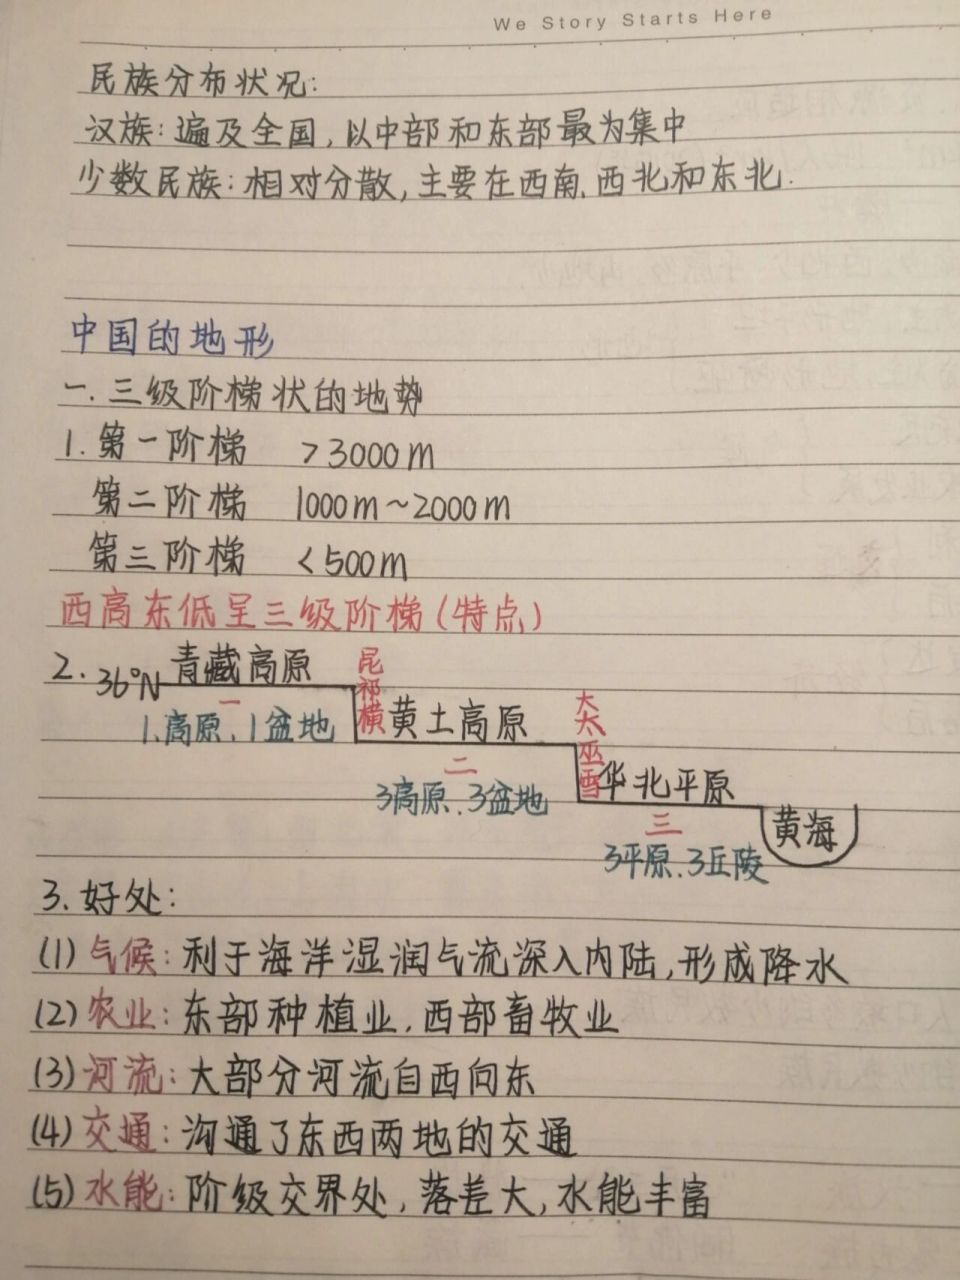 We Story Starts Here
民族分布状况:
汉族:遍及全国,以中部和东部最为集中
少数民族:相对分散,主要在西南、西北和东北.
中国的地形
一.三级阶梯状的地势
1.第一阶梯 >3000m
第二阶梯 1000m~2000m
第三阶梯 <500m
西高东低呈三级阶梯(特点)
2.36°N 青藏高原 昆祁横
一
1.高原、1盆地
黄土高原 大太巫雪
二
3高原、3盆地
华北平原
三
3平原、3丘陵
黄海
3.好处:
(1)气候:利于海洋湿润气流深入内陆,形成降水
(2)农业:东部种植业,西部畜牧业
(3)河流:大部分河流自西向东
(4)交通:沟通了东西两地的交通
(5)水能:阶级交界处,落差大,水能丰富